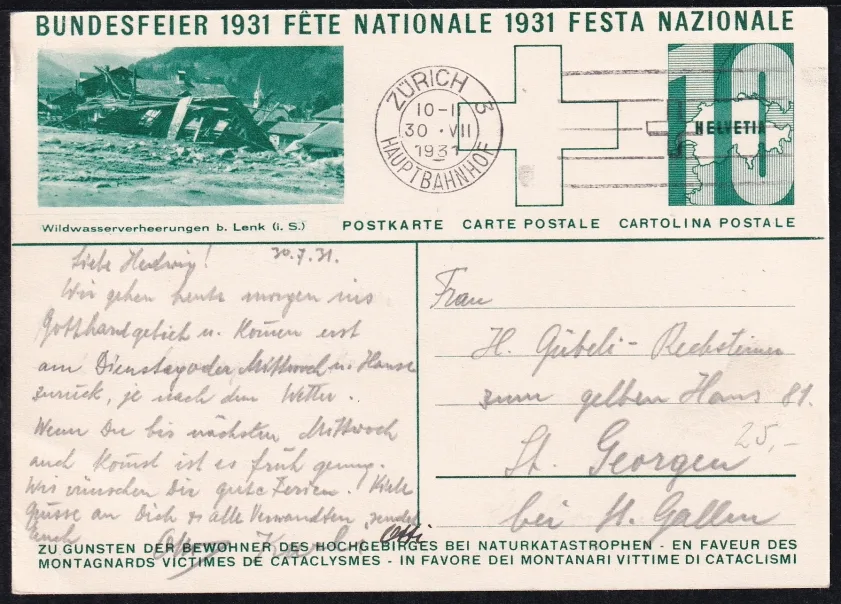 BUNDESFEIER 1931 FÊTE NATIONALE 1931 FESTA NAZIONALE
ZÜRICH 3
10-11
30.VII
1931
HAUPTBAHNHOF
10
HELVETIA
Wildwasserverheerungen b. Lenk (i. S.)
POSTKARTE CARTE POSTALE CARTOLINA POSTALE
Liebe Hedwig! 30.7.31.
Wir gehen heute morgen ins
Gotthardgebiet u. kommen erst
am Dienstag oder Mittwoch n. Hause
zurück, je nach dem Wetter.
Wenn Du bis nächsten Mittwoch
auch kommst ist es früh genug.
Wir wünschen Dir gute Ferien. Viele
Grüsse an Dich & alle Verwandten, sendet
Euch
Otti
Frau
H. Gübeli - Rechsteiner
zum gelben Haus 81.
25,-
St. Georgen
bei St. Gallen
ZU GUNSTEN DER BEWOHNER DES HOCHGEBIRGES BEI NATURKATASTROPHEN - EN FAVEUR DES
MONTAGNARDS VICTIMES DE CATACLYSMES - IN FAVORE DEI MONTANARI VITTIME DI CATACLISMI